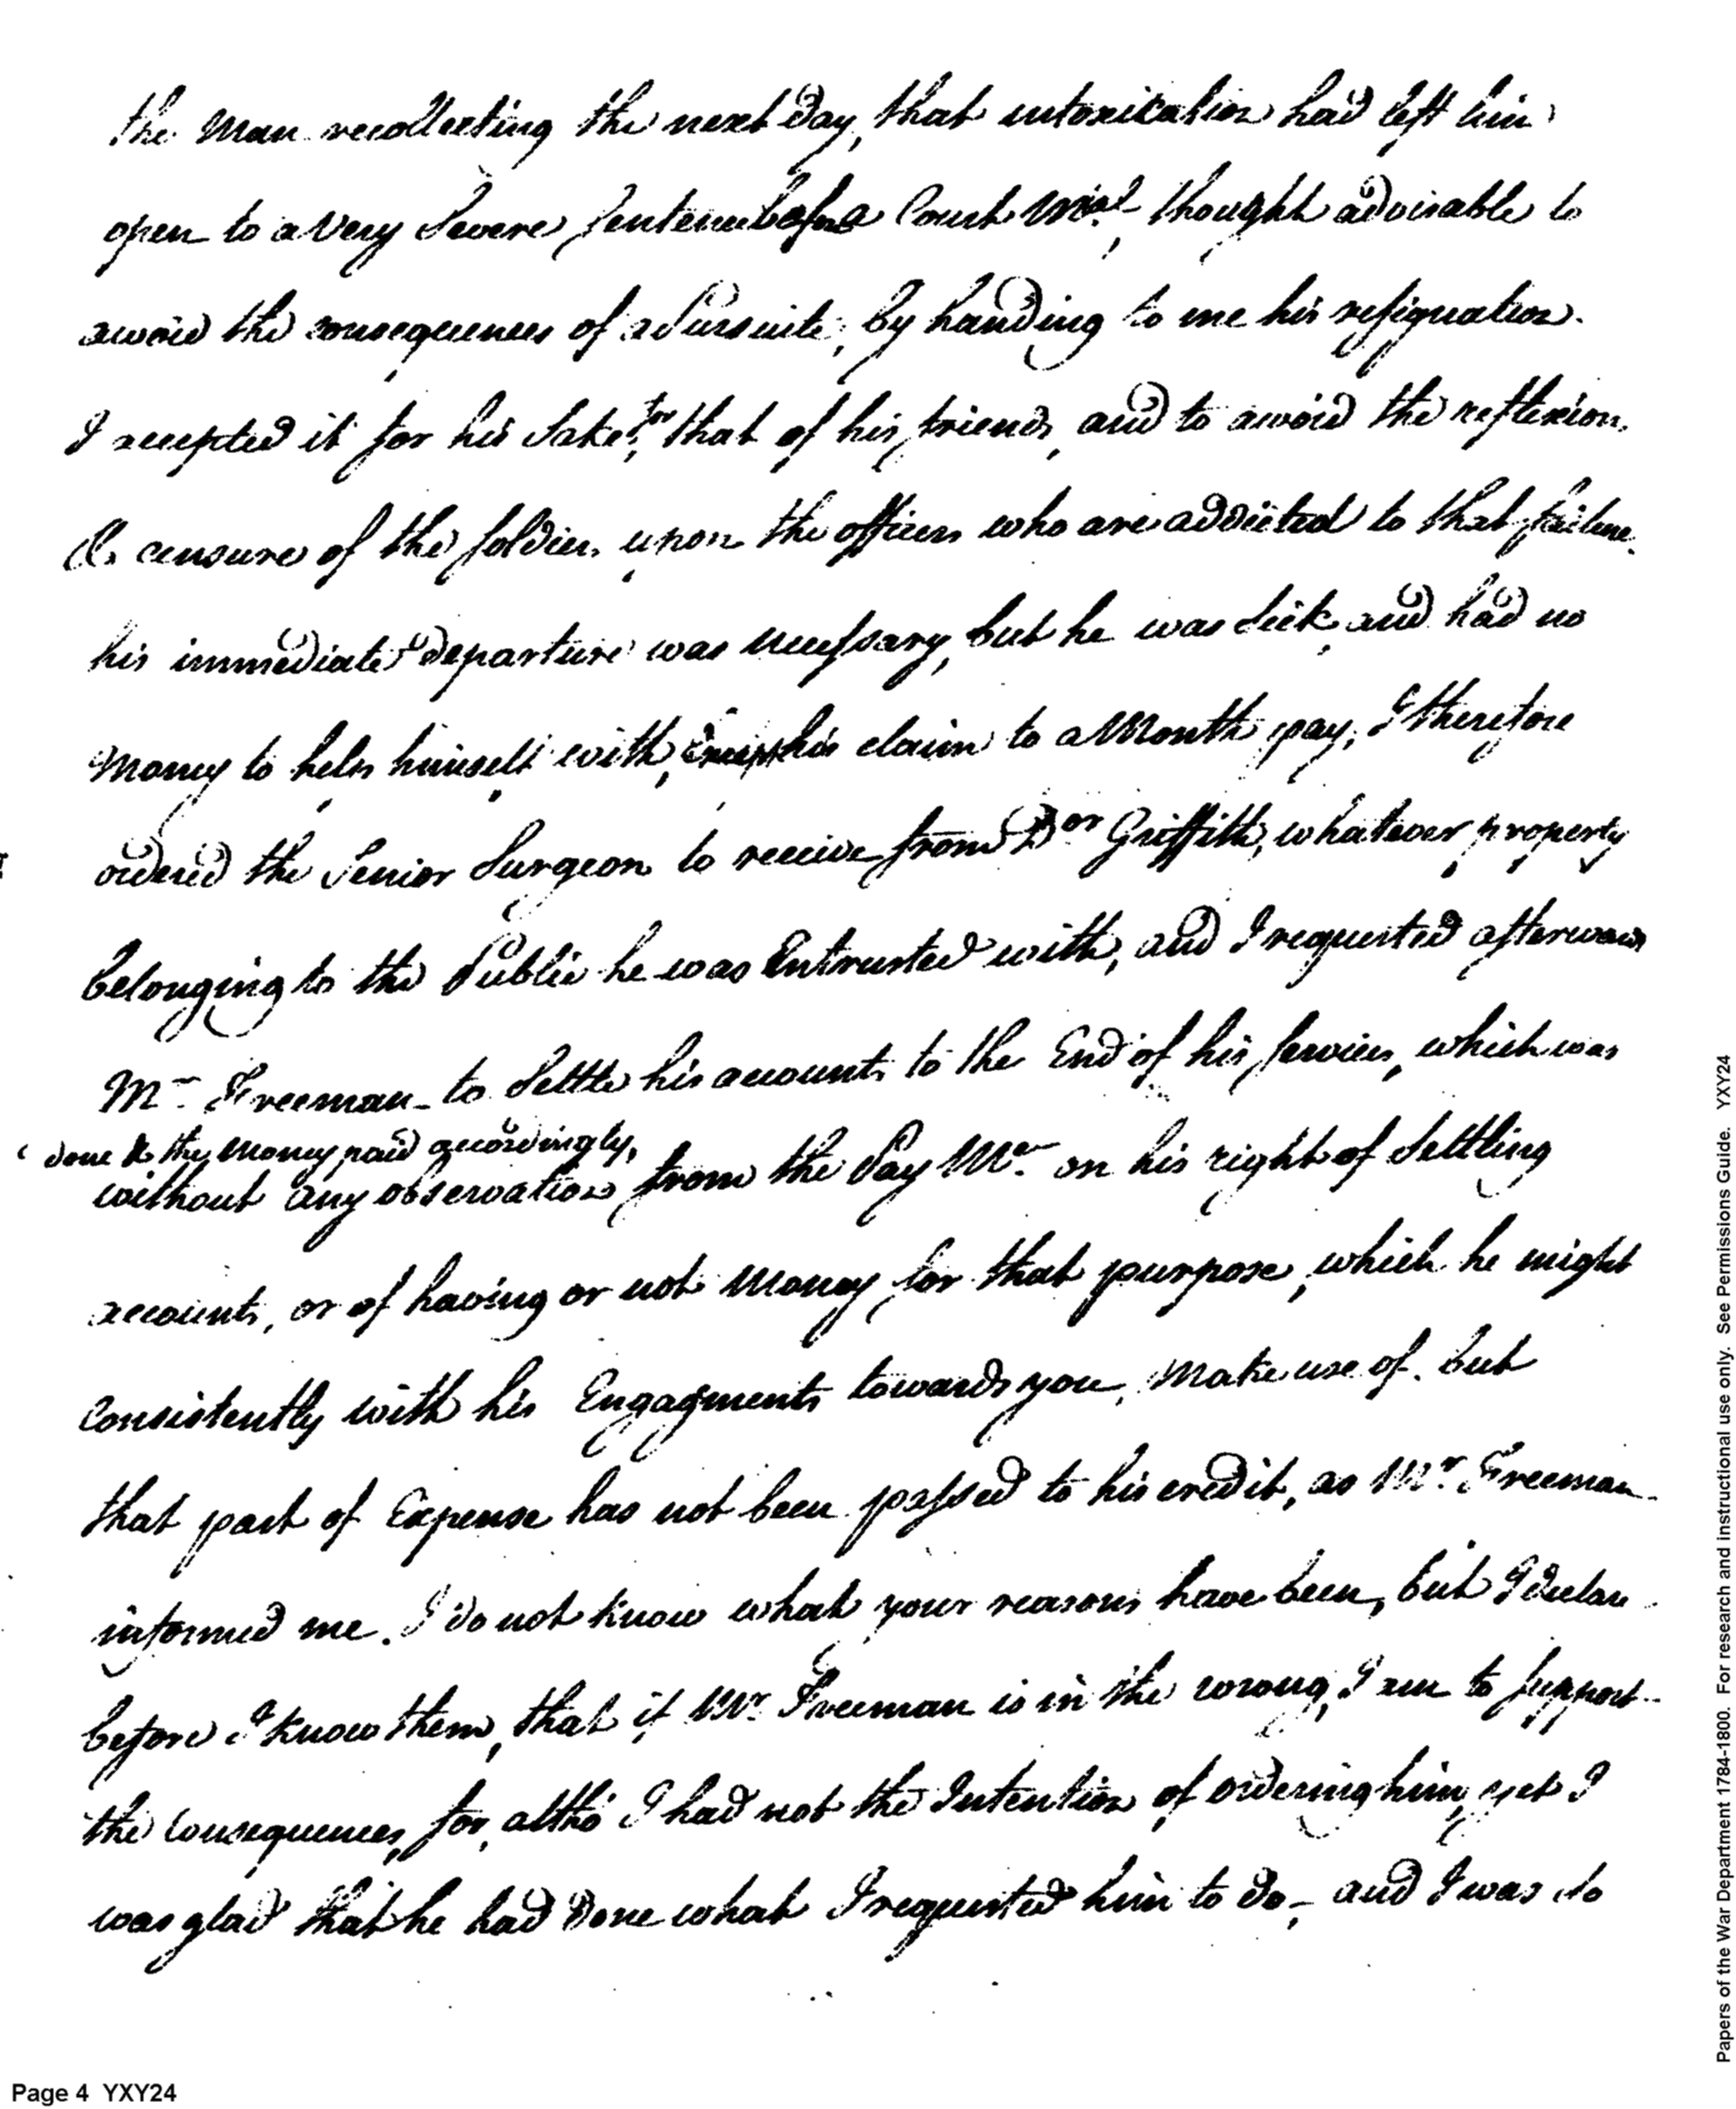 the Man recollecting the next Day, that intoxication had left him
open to a Very Severe Sentence before a Court Mial, thought advisable to
avoid the consequences of a Pursuite, by handing to me his resignation.
I accepted it for his Sake, for that of his friends, and to avoid the reflexion.
& censure of the soldiers upon the officers who are addicted to that failure.
his immediate departure was necessary, but he was Sick, and had no
Money to help himself with, Except his claim to a Month pay, I therefore
ordered the Senior Surgeon to receive from Dor Griffith, whatever property
belonging to the Public he was Entrusted with, and I requested afterwards
Mr Freeman to Settle his accounts to the End of his services, which was
done & the Money paid accordingly,
without any observation from the Pay Mr. on his right of Settling
accounts, or of having or not Money for that purpose, which he might
Consistently with his Engagments towards you, Make use of. but
that part of Expense has not been passed to his credit, as Mr. Freeman
informed me. I do not know what your reasons have been, but I declare
before I know them, that if Mr. Freeman is in the wrong, I am to support
the Consequences, for, altho' I had not the Intention of ordering him, yet I
was glad that he had Done what I requested him to do, and I was to
Page 4 YXY24
Papers of the War Department 1784-1800. For research and instructional use only. See Permissions Guide. YXY24